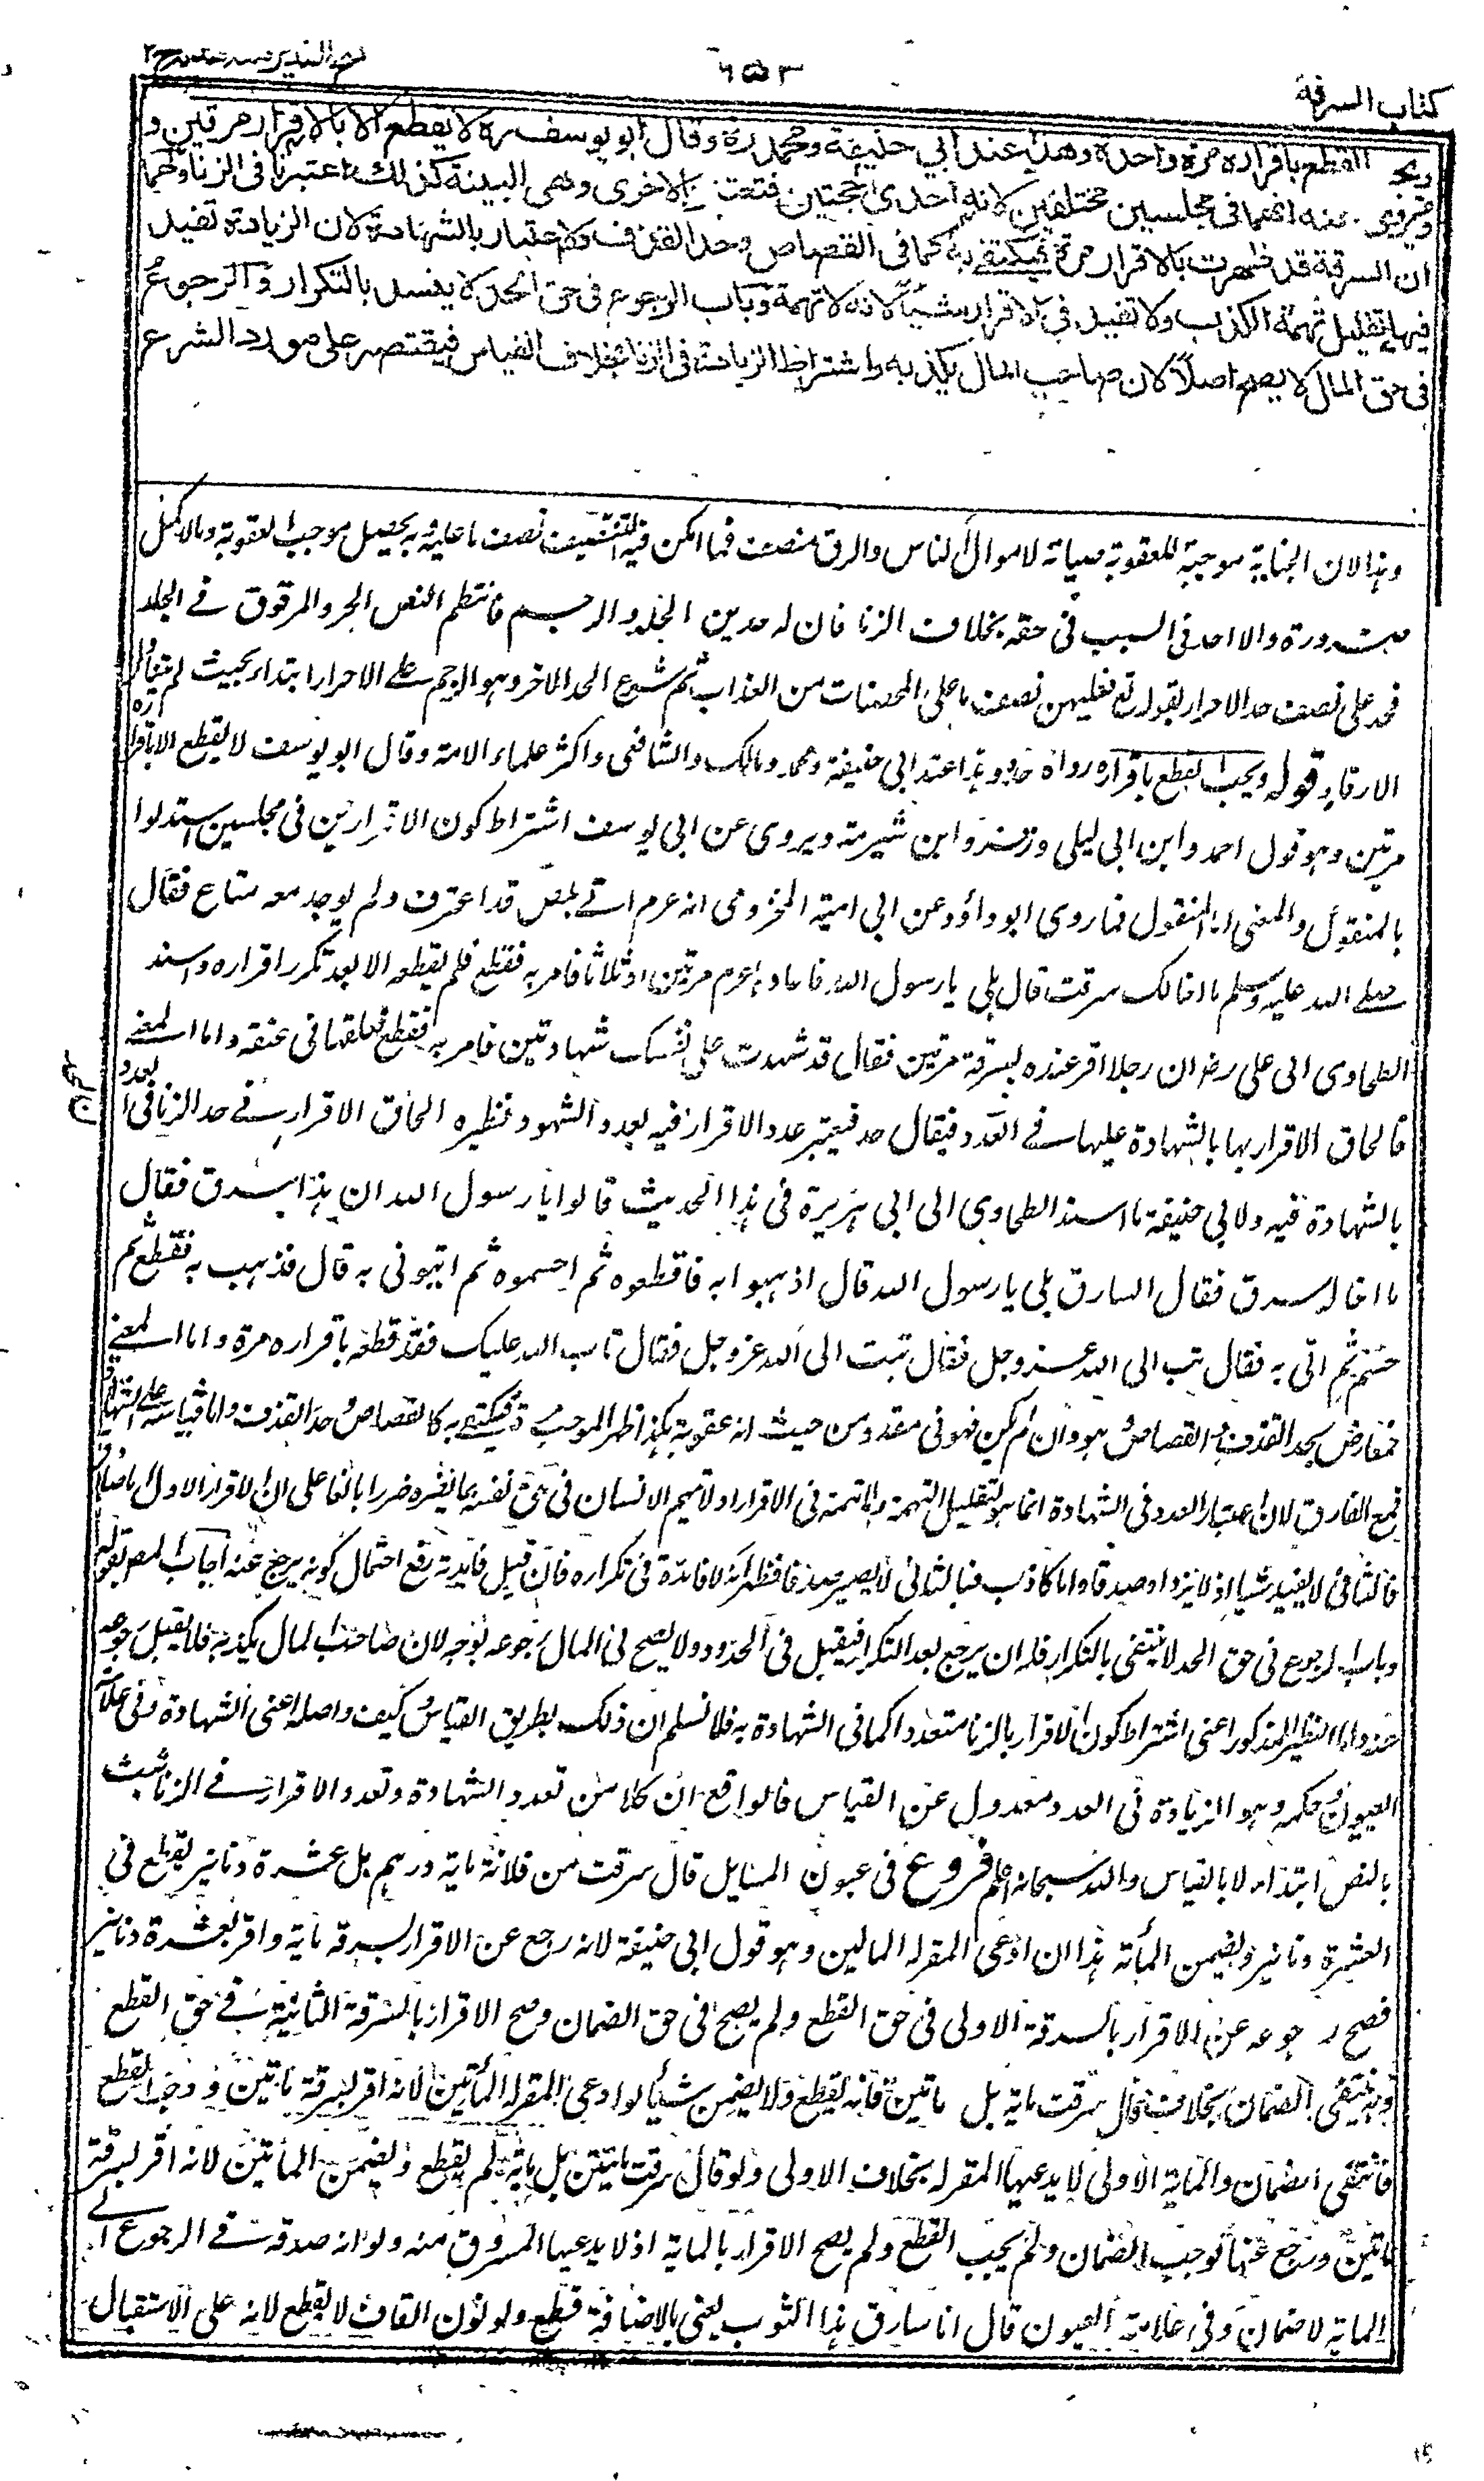 كتاب السرقة
٦٥٣
فتح القدير مع هداية ج ٢
ويجب القطع باقراره مرة واحدة وهذا عند ابي حنيفة ومحمد ره وقال ابو يوسف ره لا يقطع الا بالاقرار مرتين و
يروى عنه انهما في مجلسين مختلفين لانه احدى الحجتين فتعتبر بالاخرى وهى البينة كذلك اعتبرنا فى الزنا ولهما
ان السرقة قد ظهرت بالاقرار مرة فيكتفى به كما فى القصاص وحد القذف ولا اعتبار بالشهادة لان الزيادة تفيد
فيها تقليل تهمة الكذب ولا تفيد فى الاقرار شيئا لانه لا تهمة وباب الرجوع فى حق الحد لا ينسد بالتكرار والرجوع
فى حق المال لا يصح اصلا لان صاحب المال يكذبه واشتراط الزيادة فى الزنا بخلاف القياس فيقتصر على مورد الشرع
وهذا لان الجناية موجبة للعقوبة صيانة لاموال الناس والرق منصف فما امكن فيه التنصيف نصف ما عليه به يحصل موجب العقوبة وما لا كمل
ضرورة والا احد في السبب فى حقه بخلاف الزنا فان له حدين الجلد والرجم فانتظم النص الحر والمرقوق فے الجلد
فحد على نصف حد الاحرار بقوله تع فعليهن نصف ما على المحصنات من العذاب ثم شرع الحد الآخر وهو الرجم على الاحرار ابتداء بحيث لم يتناول
الارقاء قوله ويجب القطع باقراره مرة واحدة وهذا عند ابى حنيفة ومحمد ومالك والشافعى واكثر علماء الامة وقال ابو يوسف ره لا يقطع الا باقرار
مرتين وهو قول احمد وابن ابى ليلى وزفر وابن شبرمة ويروى عن ابى يوسف اشتراط كون الاقرارين فى مجلسين استدلوا
بالمنقول والمعنى اما المنقول فما روى ابو داؤد عن ابى امية المخزومى انه عم اتى بلص قد اعترف ولم يوجد معه متاع فقال
صلے الله عليه وسلم ما اخالك سرقت قال بلى يا رسول الله فاعادها عم مرتين او ثلاثا فامر به فقطع فلم يقطعه الا بعد تكرر اقراره واسند
الطحاوى الى على رض ان رجلا اقر عنده بسرقة مرتين فقال قد شهدت على نفسك شهادتين فامر به فقطع فعلقها فى عنقه واما المعنى
فالحاق الاقرار بها بالشهادة عليها فے العدد فيقال حد فيعتبر عدد الاقرار فيه بعدد الشهود نظيره الحاق الاقرار فے حد الزنا فى العدد
بالشهادة فيه ولابى حنيفة ما اسند الطحاوى الى ابى هريرة فى هذا الحديث قالوا يا رسول الله ان هذا سرق فقال
ما اخاله سرق فقال السارق بلى يا رسول الله قال اذهبوا به فاقطعوه ثم احسموه ثم ايتونى به قال فذهب به فقطع ثم
حسم ثم اتى به فقال تب الى الله عز وجل فقال تبت الى الله عز وجل فقال تاب الله عليك فقد قطعه باقراره مرة واما المعنى
فمعارض بحد القذف والقصاص هو وان لم يكن فهو فى معناه من حيث انه عقوبة هكذا ظهر الموجب مرة فيكتفى به كالقصاص وحد القذف واما قياسه على الشهادة
فمع الفارق لان اعتبار العدد فى الشهادة انما هو لتقليل التهمة ولا تهمة فى الاقرار اذ لا يتهم الانسان فى حق نفسه بما يضره ضررا بالغا على ان الاقرار الاول اما صادق
فالثانى لا يفيد شيئا اذ لا يزداد صدقا واما كاذب فبالثانى لا يصير صدقا فظهر انه لا فائدة فى تكراره فان قيل فائدته رفع احتمال كونه يرجع عنه اجاب المص بقوله
وباب الرجوع فى حق الحد لا ينتفى بالتكرار فله ان يرجع بعد التكرار فيقبل فى الحدود ولا يصح فى المال رجوعه بوجه لان صاحب المال يكذبه فلا يقبل رجوعه
هذا واما النظير المذكور اعنى اشتراط كون الاقرار بالزنا متعددا كما فى الشهادة به فلا نسلم ان ذلك بطريق القياس كيف واصله اعنى الشهادة وفى علامة
العيون حكمه وهو الزيادة فى العدد معدول عن القياس فالواقع ان كلا من تعدد الشهادة وتعدد الاقرار فے الزنا ثبت
بالنص ابتداء لا بالقياس والله سبحانه اعلم فروع فى عيون المسايل قال سرقت من فلان مائة درهم بل عشرة دنانير يقطع فى
العشرة دنانير ويضمن المائة هذا ان ادعى المقر له المالين وهو قول ابى حنيفة لانه رجع عن الاقرار بسرقة مائة واقر بعشرة دنانير
فصح رجوعه عن الاقرار بالسرقة الاولى فى حق القطع ولم يصح فى حق الضمان وصح الاقرار بالسرقة الثانية فے حق القطع
وبه ينتفى الضمان بخلاف ما لو قال سرقت مائة بل مائتين فانه يقطع ولا يضمن شيئا لو ادعى المقر له المائتين لانه اقر بسرقة مائتين ووجب القطع
فانتفى الضمان والمائة الاولى لا يدعيها المقر له بخلاف الاولى ولو قال سرقت مائتين بل مائة لم يقطع ويضمن المائتين لانه اقر بسرقة
مائتين ورجع عنها فوجب الضمان ولم يجب القطع ولم يصح الاقرار بالمائة اذ لا يدعيها المسروق منه ولو انه صدقه فے الرجوع الى
المائة لا ضمان وفى علامة العيون قال انا سارق هذا الثوب يعنى بالاضافة قطع ولو نون القاف لا يقطع لانه على الاستقبال